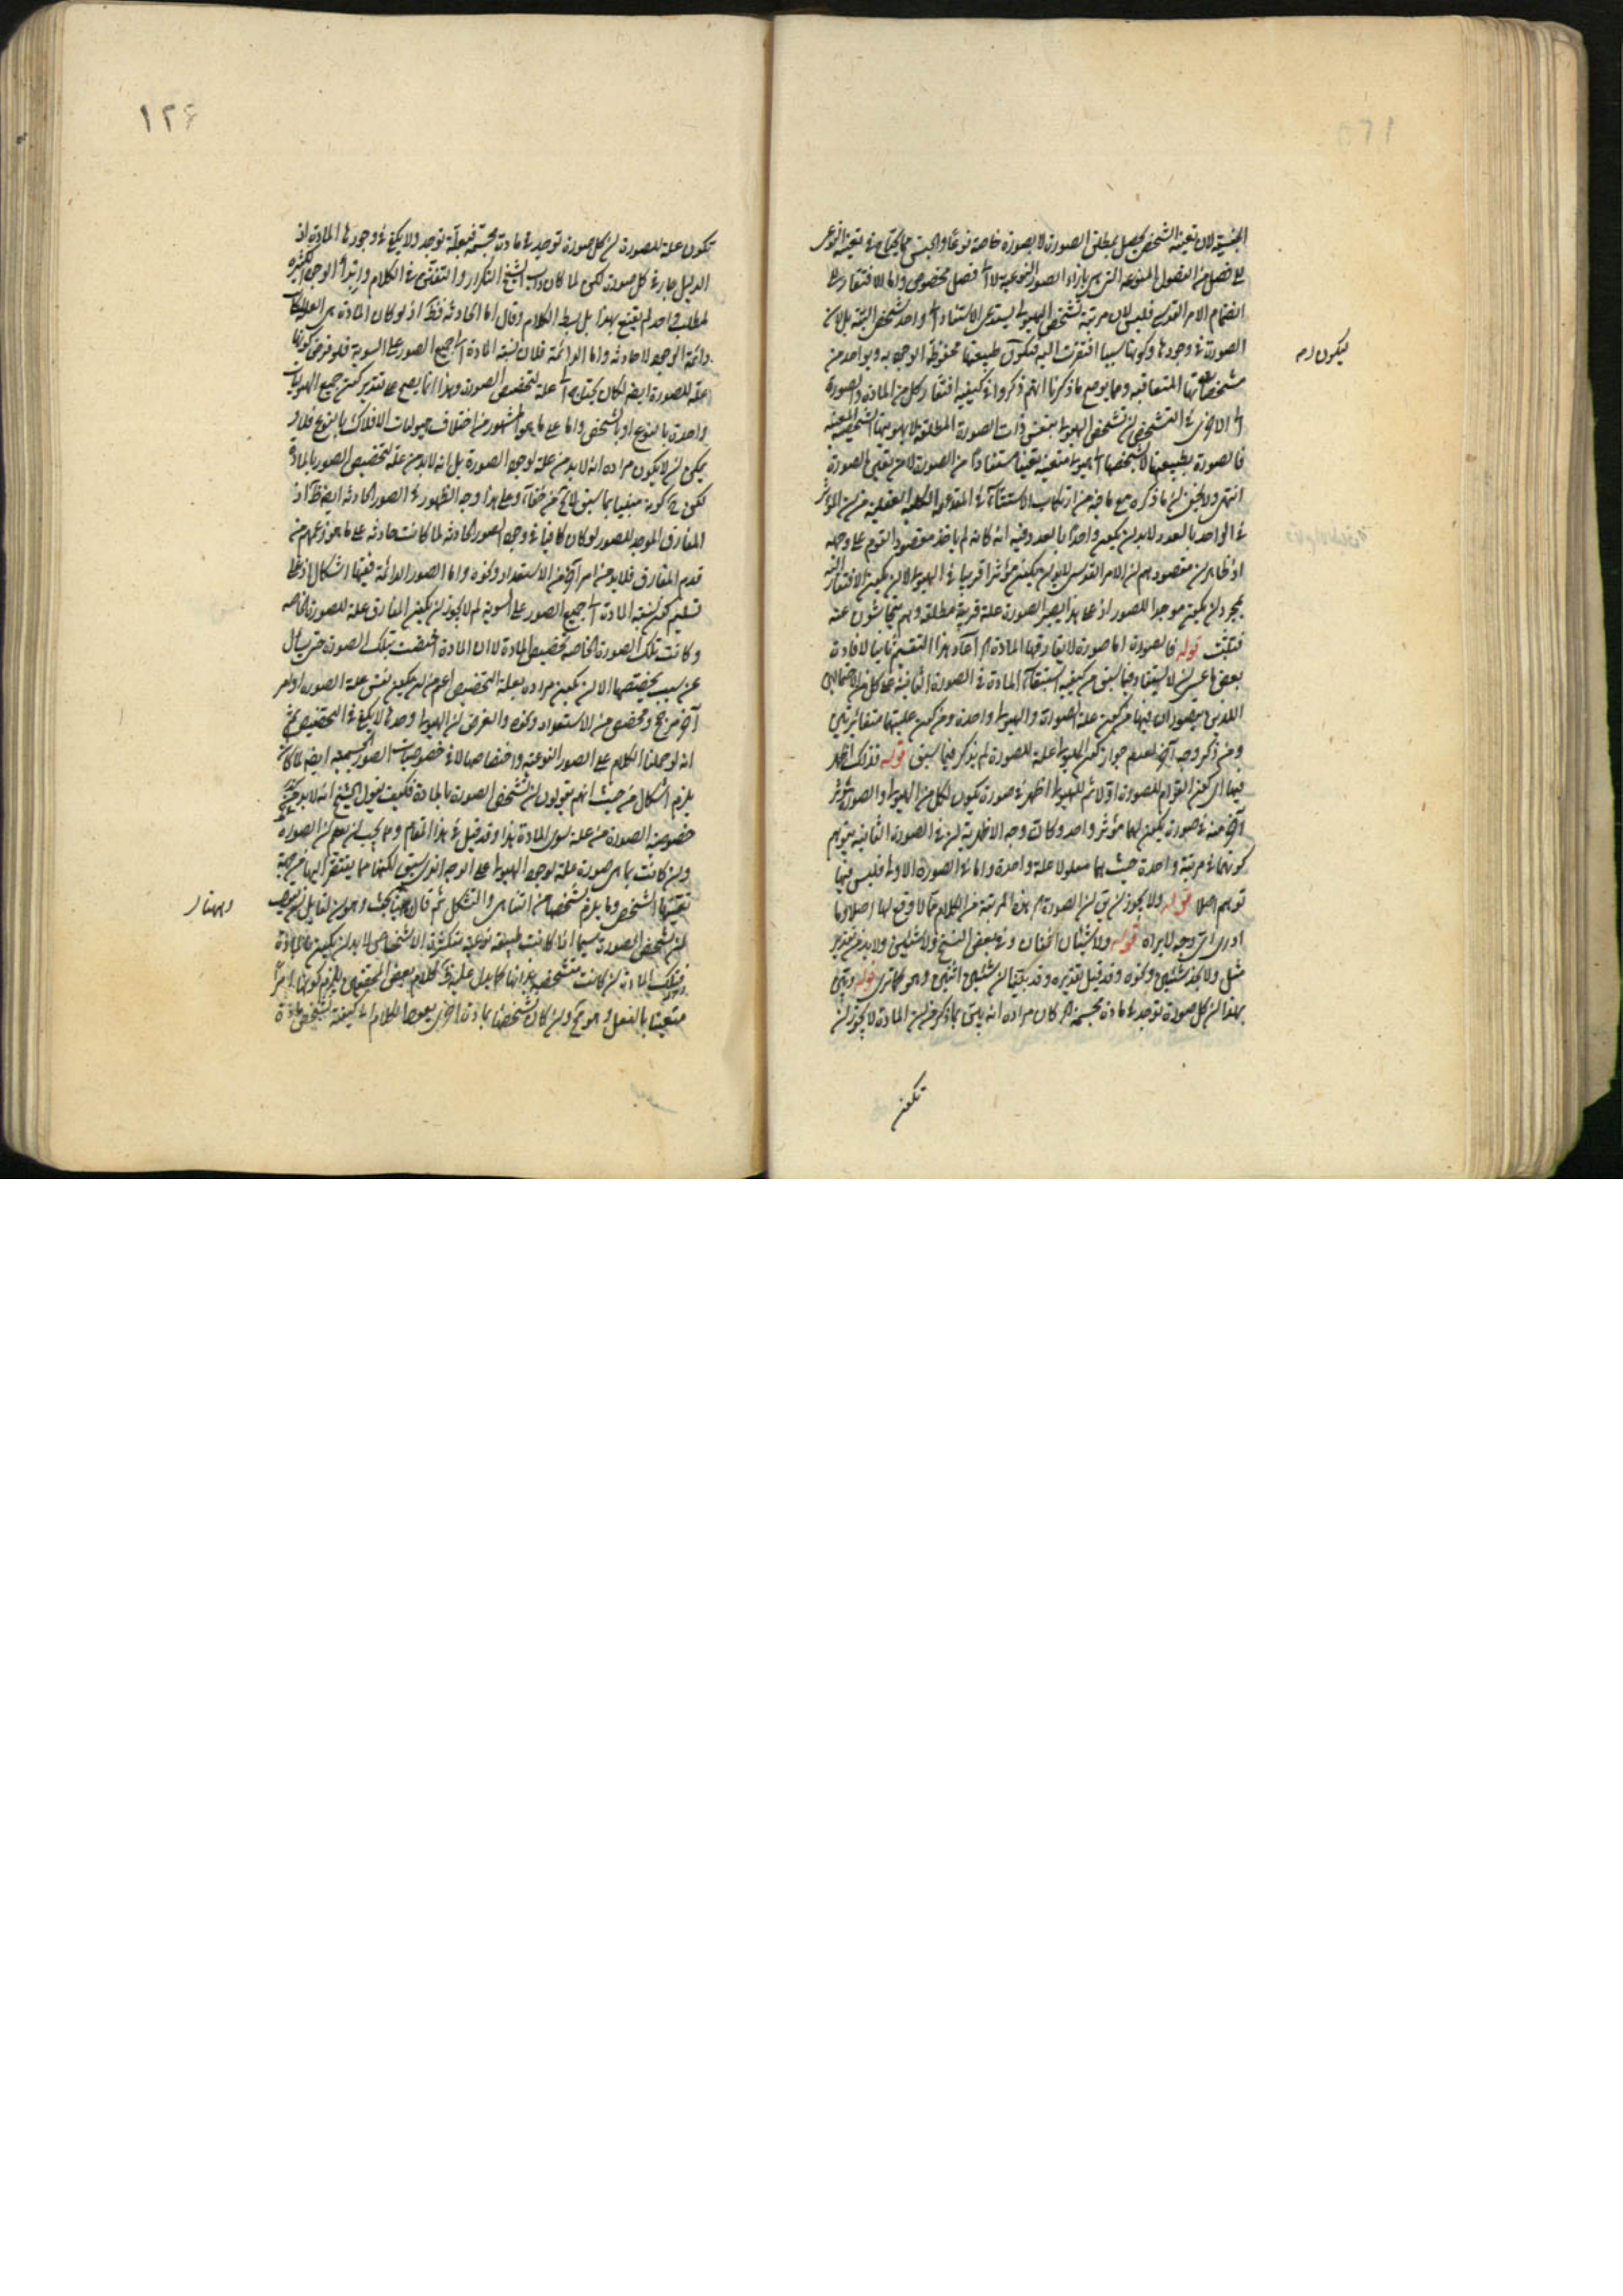 الجنسية لان تعينه الشخصى يحصل بمطلق الصورة لا بصورة خاصة نوعا والجنس مما يحتاج فى تعينه النوعى
الى فصل من الفصول المنوعة التى هى بازاء الصور النوعية لا الى فصل مخصوص واما الافتقار الى
انضمام الامر القدسى فليس لان مرتبة تشخص الهيولى يستدعى الاستناد الى واحد شخصى البتة بل لان
الصورة فى وجودها وكونها سببا افتقرت اليه فتكون طبيعتها محفوظة الوجود به وبواحد من
مشخصاتها المتعاقبة ومما يوضح ما ذكرنا انهم ذكروا فى كيفية افتقار كل من المادة والصورة
الى الاخرى فى التشخص ان تشخص الهيولى بنفس ذات الصورة المطلقة لا بهويتها الشخصية المعينة
فالصورة بطبيعتها لا بتشخصها الى هيولى متعينة تعينا مستفادا من الصورة لا من تعين الصورة
انتهى ولا يخفى ان ما ذكره مع ما فيه من ارتكاب الاستثناء فى المقدمة الكلية العقلية من ان المؤثر
فى الواحد بالعدد لابد ان يكون واحدا بالعدد وفيه انه كانه لم ياخذ مقصود القوم على وجهه
اذ ظاهر ان مقصودهم ان الامر القدسى لابد ان يكون مؤثرا قريبا فى الهيولى لا ان يكون الافتقار اليه
بمجرد ان يكون موجدا للصور اذ على هذا يصير الصورة علة قريبة مطلقة وهم يتحاشون عنه
فتثبت قوله فالصورة اما صورة لا يفارقها المادة اه اعاد هذا التقسيم ثانيا لافادة
بعض ما عسى ان لا يستفاد مما سبق من كيفية استبقاء المادة فى الصورة الثانية على كل من الاحتمالين
اللذين يتصوران فيها من كون علة الصورة والهيولى واحدة ومن كون علتيهما متغايرتين
ومن ذكر وجه آخر لعدم جواز كون الهيولى علة للصورة لم يذكر فيما سبق قوله فذلك اظهر
فيها اى كون القوام للصورة اولا ثم للهيولى اظهر فى صورة يكون لكل من الهيولى والصورة مؤثر
آخر منه فى صورة يكون لهما مؤثر واحد وكان وجه الاظهرية ان فى الصورة الثانية يتوهم
كونهما فى مرتبة واحدة حيث هما معلولا علة واحدة واما فى الصورة الاولى فليس فيها
توهم اصلا قوله ولا يجوز ان يق ان الصورة اه هذه المرتبة من الكلام مما لا وقع لها اصلا وما
ادرى اى وجه لايراده قوله ولا شيئان اثنان وفى بعض النسخ ولا شيئين ولابد من تقدير
مثل ولا يجد شيئين ونحوه وقد قيل تقديره وقد يكتبا ان شيئين اثنين وهو كما ترى قوله وتبين
بهذا ان كل صورة توجد فى مادة مجسمة اه كان مراده انه يتبين بما ذكر من ان المادة لا يجوز ان
تكون
ليكون له
١٢٤
تكون علة للصورة ان كل صورة توجد فى مادة مجسمة فبعلة توجد ولا يكفى فى وجودها المادة اذ
الدليل جار فى كل صورة لكن لما كان داب الشيخ التكرار والتفنن فى الكلام وايراد الوجوه الكثيرة
لمطلب واحد لم يقنع بهذا بل بسط الكلام وقال اما الحادثة فظ اذ لو كان المادة هى العلة لكانت
دائمة الوجود لا حادثة واما الدائمة فلان نسبة المادة الى جميع الصور على السوية فلو فرض كونها
علة للصورة ايضا لكان يحتاج الى علة لتخصص الصورة وهذا انما يصح على تقدير كون جميع الهيوليات
واحدة بالنوع او بالشخص واما على ما هو المشهور من اختلاف هيوليات الافلاك بالنوع فلا و
يمكن ان لا يكون مراده انه لابد من علة لوجود الصورة بل انه لابد من علة لتخصيص الصور بالمادة
لكن فى كونه مبينا بما سبق لا يخ عن خفاء وعلى هذا وجه الظهور فى الصور الحادثة ايضا ظ اذ
المفارق الموجد للصور لو كان كافيا فى وجود الصور الحادثة لما كانت حادثة على ما هو زعمهم من
قدم المفارق فلابد من امر آخر من الاستعداد ونحوه واما الصور الدائمة ففيها اشكال اذ على
تسليم كون نسبة المادة الى جميع الصور على السوية لم لا يجوز ان يكون المفارق علة للصورة الخاصة
وكانت تلك الصورة الخاصة تخصيص المادة لا ان المادة اختصت بتلك الصورة حتى يسأل
عن سبب يخصصها الا ان يكون مراده بعلة التخصيص اعم من ان يكون نفس علة الصورة او امر
آخر مرجح ومخصص من الاستعداد ونحوه والغرض ان الهيولى وحدها لا يكفى فى التخصيص ثم
انه لو حملنا الكلام على الصور النوعية واختصاصها لا فى خصوصيات الصور الجسمية ايضا لكان
يلزم اشكال من حيث انهم يقولون ان تشخص الصورة بالمادة فكيف يقول الشيخ انه لابد فى
خصوصية الصورة من علة سوى المادة هذا وقد قيل فى هذا المقام ومما يجب ان يعلم ان الصورة
وان كانت بما هى صورة علة لوجود الهيولى على الوجه الذى سبق لكنها مما يفتقر اليها من جهة
تعينها الشخصى وما يلزم تشخصها من التناهى والتشكل ثم قال هنا بحث وهو ان لقائل ان يقول
ان تشخص الصورة سيما اذا كانت طبيعة نوعية متكثرة الاشخاص لابد ان يكون بالمادة
فتلك المادة ان كانت متشخصة بذاتها كما يدل عليه كلام بعض المحققين يلزم كونها امرا
متعينا بالفعل وهو مح وان كان تشخصها بمادة اخرى يعود الكلام الى كيفية تشخص مادة
وههنا